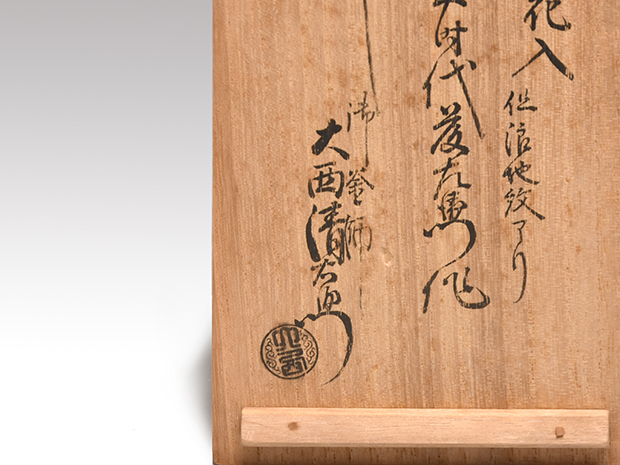 花入 但浪地紋アリ
時代藤左衛門作
御釜師
大西清右衛門
大西